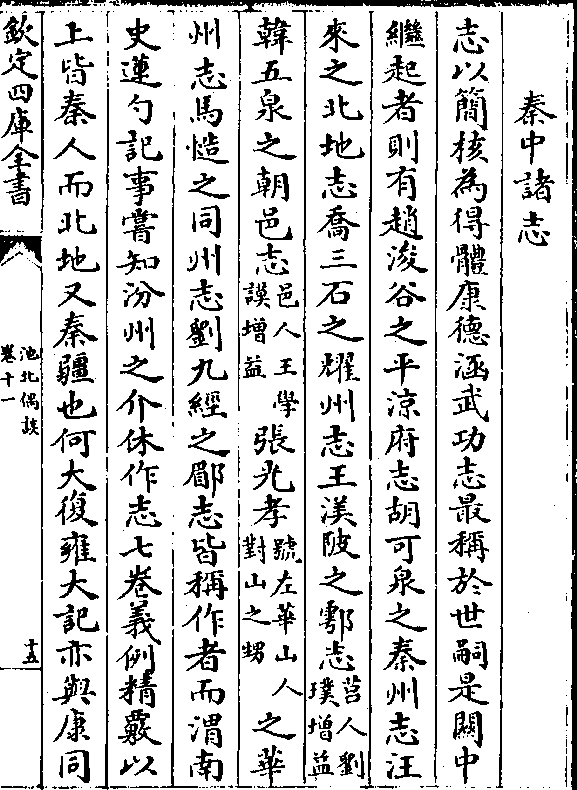 秦中諸志
志以簡核為得體康德涵武功志最稱於世嗣是關中
繼起者則有趙浚谷之平涼府志胡可泉之秦州志汪
來之北地志喬三石之耀州志王渼陂之鄠志莒人劉璞增益
韓五泉之朝邑志邑人王學謨增益張光孝號左華山人對山之甥之華
州志馬慥之同州志劉九經之郿志皆稱作者而渭南
史蓮勺記事嘗知汾州之介休作志七卷義例精覈以
上皆秦人而北地又秦疆也何大復雍大記亦與康同
欽定四庫全書
池北偶談
卷十一
十五